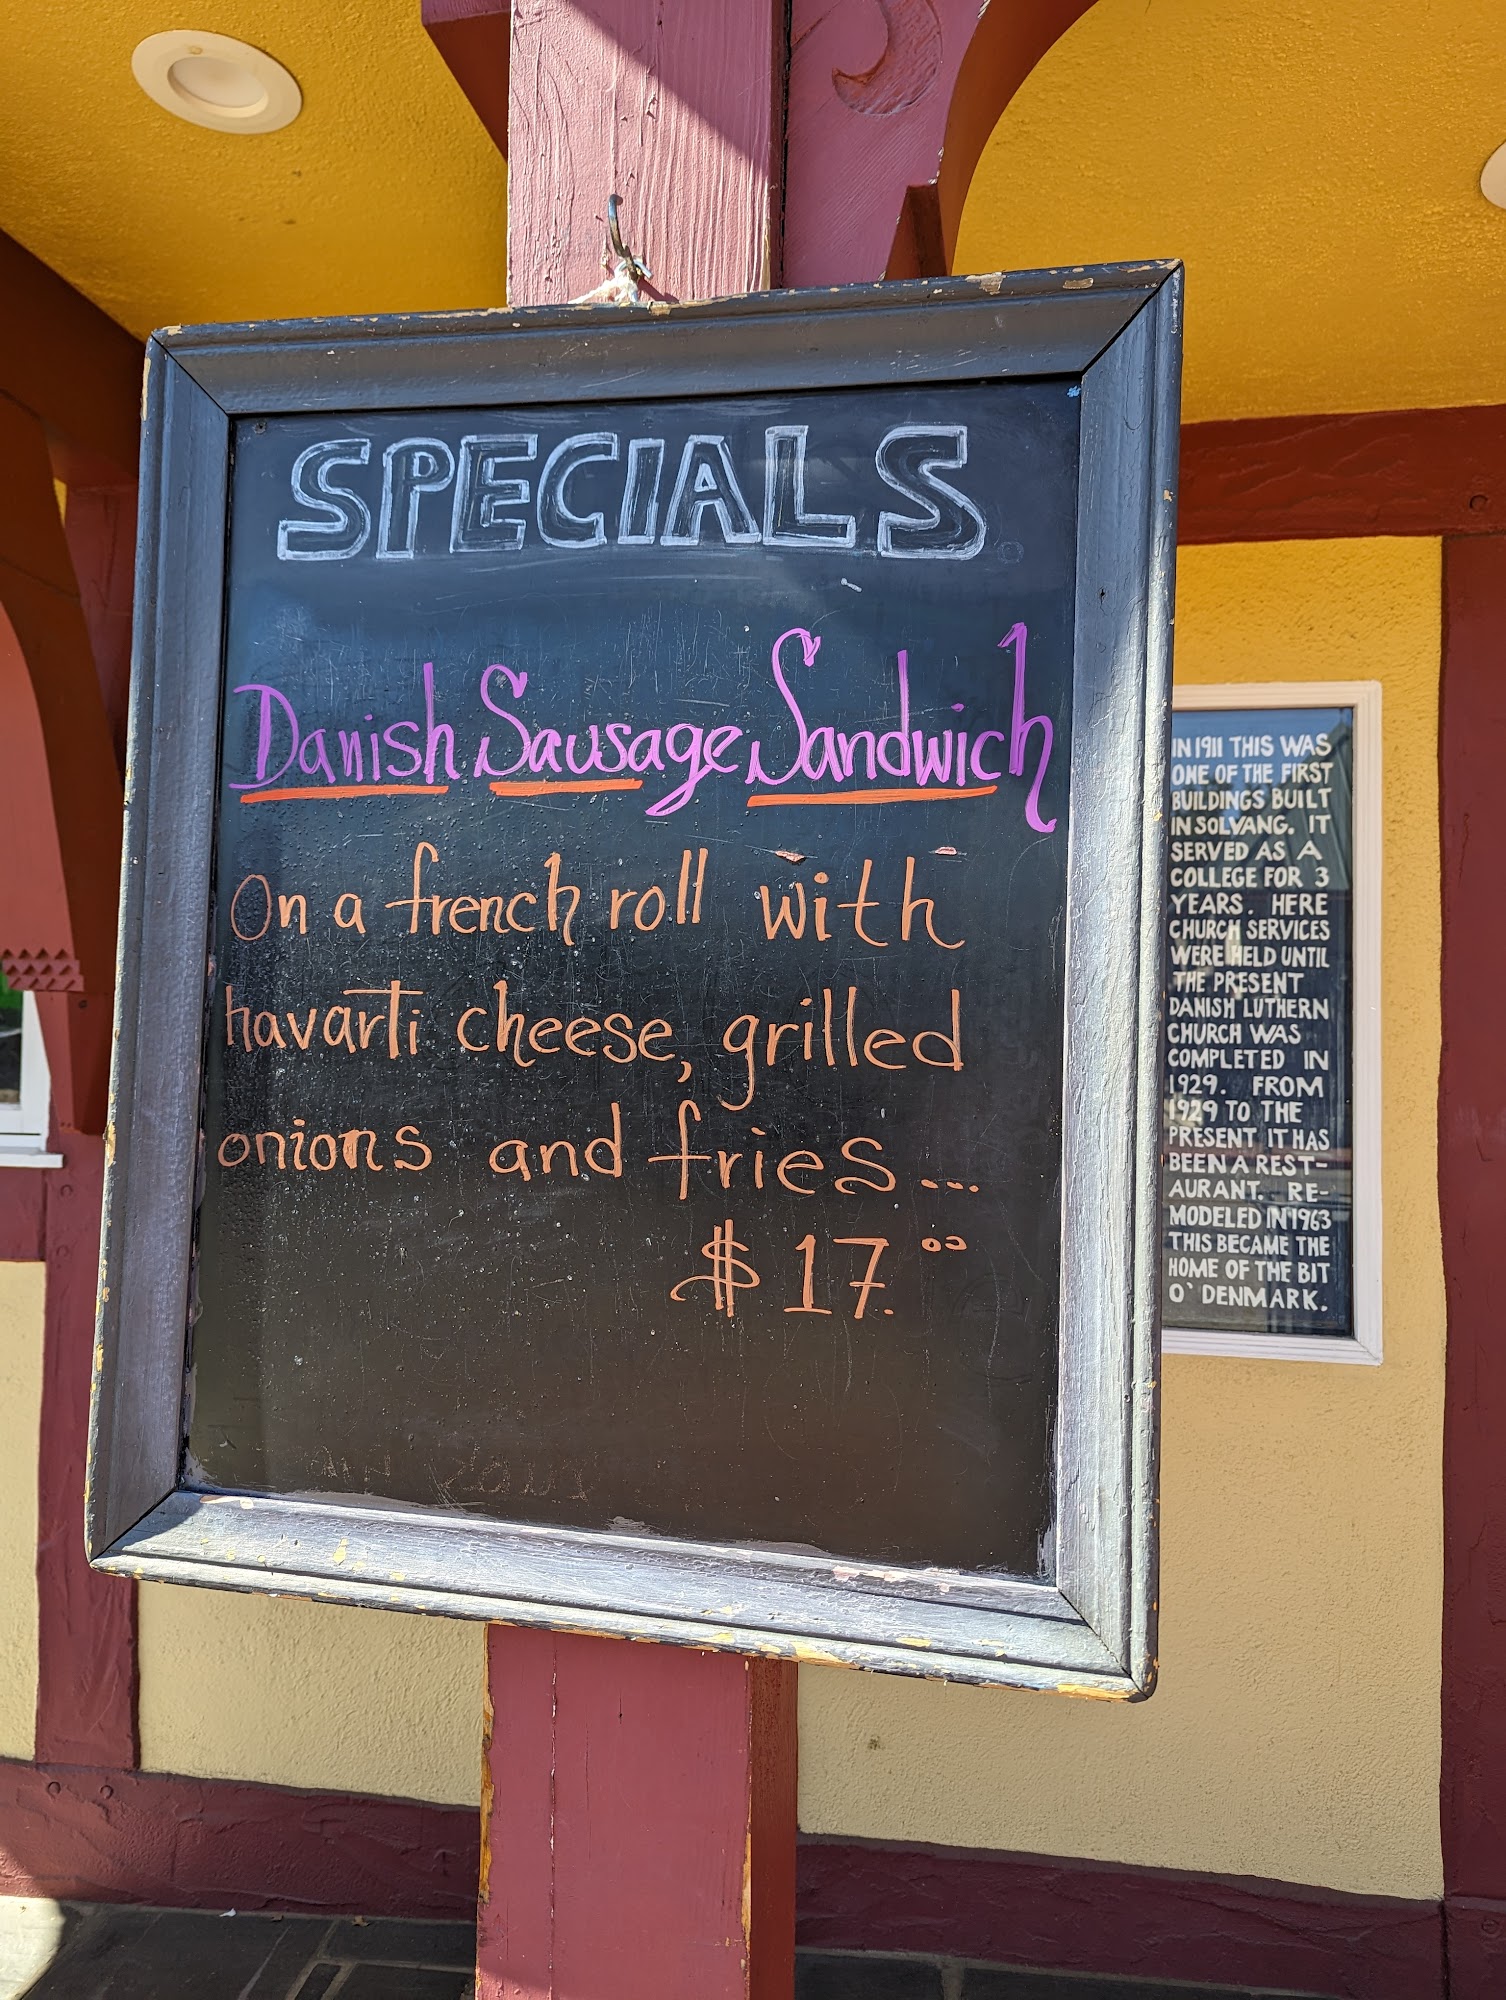 SPECIALS
Danish Sausage Sandwich
On a french roll with
havarti cheese, grilled
onions and fries...
$17.00
IN 1911 THIS WAS
ONE OF THE FIRST
BUILDINGS BUILT
IN SOLVANG. IT
SERVED AS A
COLLEGE FOR 3
YEARS. HERE
CHURCH SERVICES
WERE HELD UNTIL
THE PRESENT
DANISH LUTHERN
CHURCH WAS
COMPLETED IN
1929. FROM
1929 TO THE
PRESENT IT HAS
BEEN A REST-
AURANT. RE-
MODELED IN 1963
THIS BECAME THE
HOME OF THE BIT
O' DENMARK.